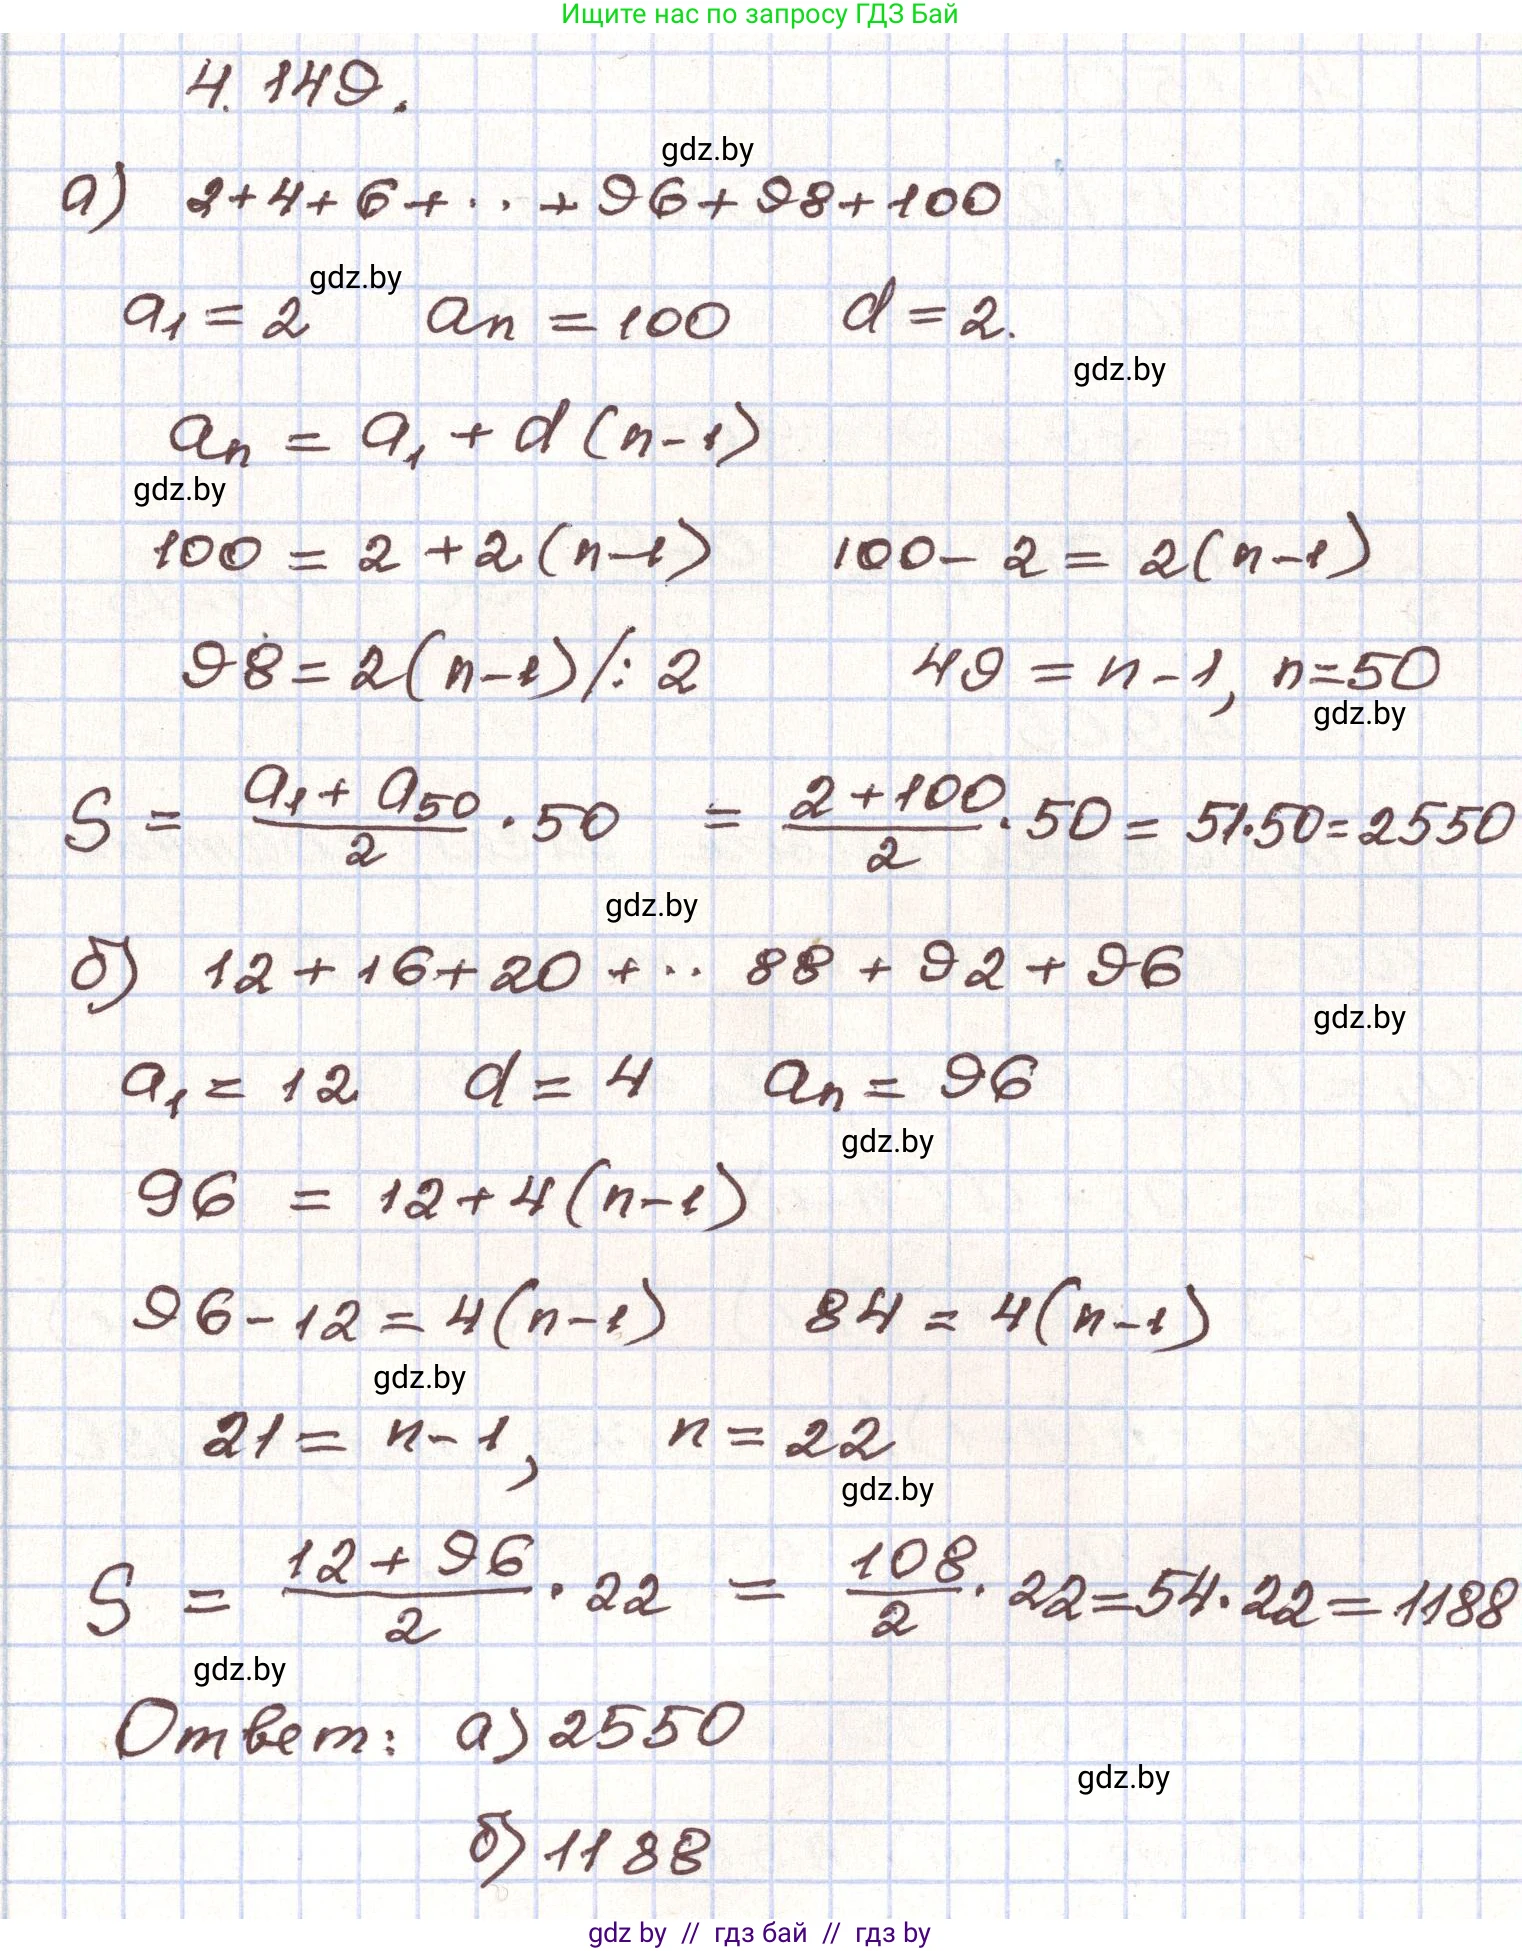 Ищите нас по запросу ГДЗ Бай
4.149.
gdz.by
а) 2+4+6+...+96+98+100
gdz.by
a₁ = 2 aₙ = 100 d = 2.
gdz.by
aₙ = a₁ + d (n-1)
gdz.by
100 = 2 + 2 (n-1) 100 - 2 = 2(n-1)
98 = 2(n-1) /: 2 49 = n - 1, n=50
gdz.by
S = (a₁ + a₅₀)/2 · 50 = (2+100)/2 · 50 = 51·50 = 2550
gdz.by
б) 12 + 16 + 20 + .. 88 + 92 + 96
gdz.by
a₁ = 12 d = 4 aₙ = 96
gdz.by
96 = 12 + 4(n-1)
96 - 12 = 4(n-1) 84 = 4(n-1)
gdz.by
21 = n - 1, n = 22
gdz.by
S = (12 + 96)/2 · 22 = 108/2 · 22 = 54 · 22 = 1188
gdz.by
Ответ: а) 2550
gdz.by
б) 1188
gdz by // гдз бай // гдз by